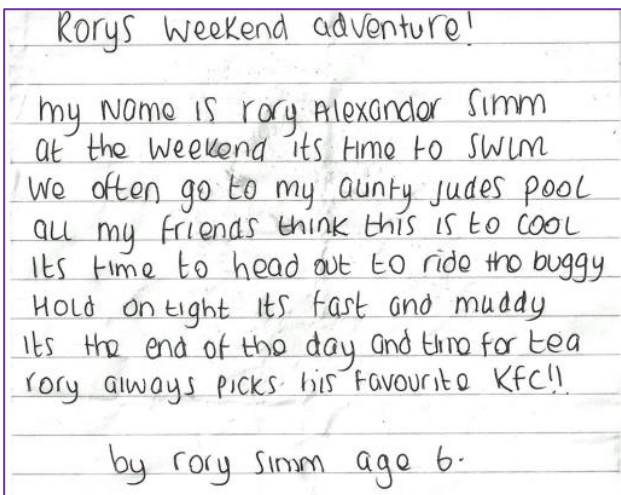 Rorys weekend adventure!
my Name is rory Alexander Simm
at the weekend its time to swim
We often go to my aunty judes pool
all my friends think this is to cool
Its time to head out to ride the buggy
Hold on tight its fast and muddy
its the end of the day and time for tea
rory always picks his favourite KFC!!
by rory simm age 6.